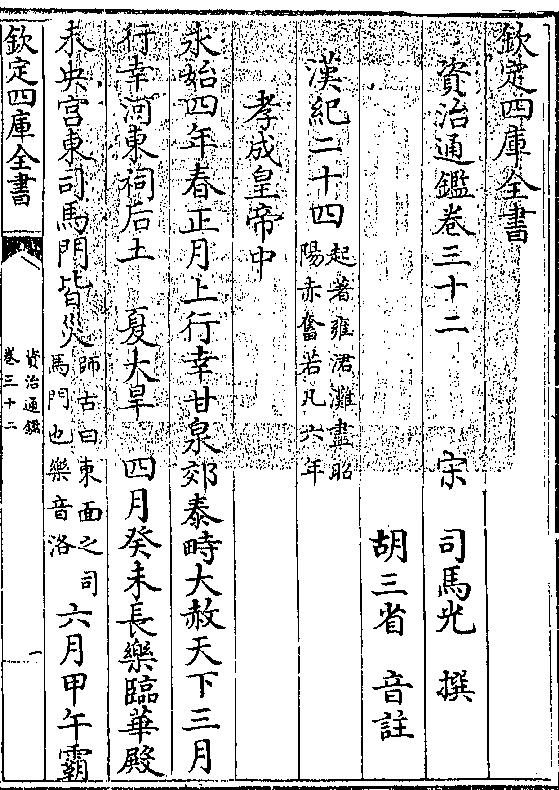 欽定四庫全書
資治通鑑卷三十二
宋　司馬光　撰
胡三省　音註
漢紀二十四起著雍涒灘盡昭
陽赤奮若凡六年
孝成皇帝中
永始四年春正月上行幸甘泉郊泰畤大赦天下三月
行幸河東祠后土　夏大旱　四月癸未長樂臨華殿
未央宮東司馬門皆災師古曰東面之司
馬門也樂音洛　六月甲午霸
欽定四庫全書
資治通鑑
卷三十二
一